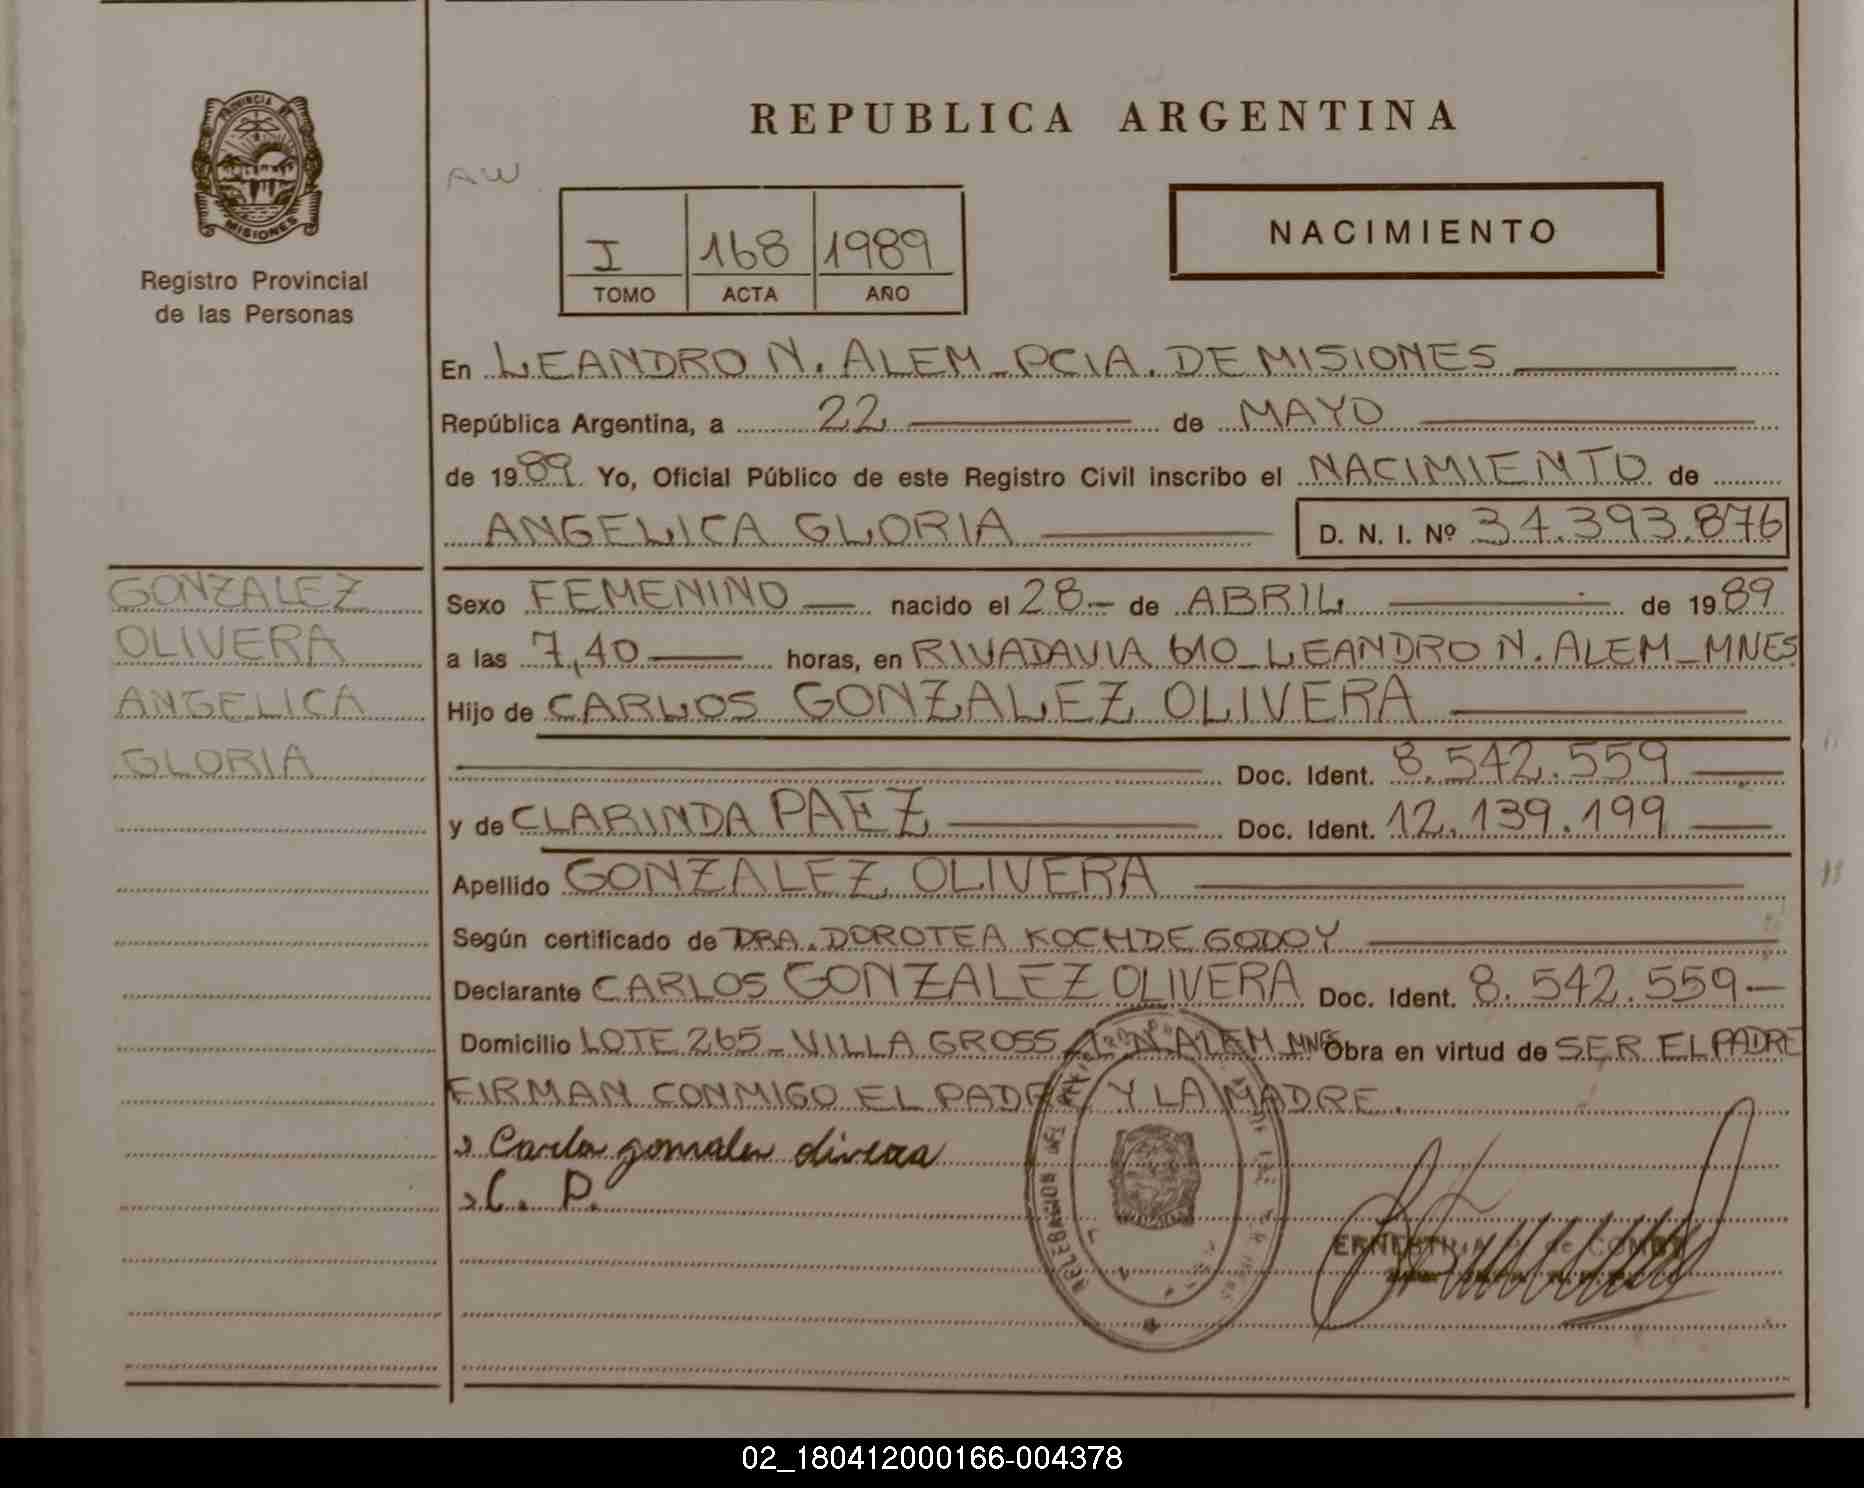 PROVINCIA DE
MISIONES
Registro Provincial
de las Personas
REPUBLICA ARGENTINA
AW
I 168 1989
TOMO ACTA AÑO
NACIMIENTO
En LEANDRO N. ALEM_PCIA. DE MISIONES
República Argentina, a 22 de MAYO
de 1989. Yo, Oficial Público de este Registro Civil inscribo el NACIMIENTO de
ANGELICA GLORIA D. N. I. Nº 34.393.876
GONZALEZ
OLIVERA
ANGELICA
GLORIA
Sexo FEMENINO nacido el 28 de ABRIL de 1989
a las 7,40 horas, en RIVADAVIA 610_LEANDRO N. ALEM_MNES
Hijo de CARLOS GONZALEZ OLIVERA
Doc. Ident. 8.542.559
y de CLARINDA PAEZ Doc. Ident. 12.139.199
Apellido GONZALEZ OLIVERA
Según certificado de DRA. DOROTEA KOCH DE GODOY
Declarante CARLOS GONZALEZ OLIVERA Doc. Ident. 8.542.559
Domicilio LOTE 265_VILLA GROSS_L.N.ALEM_MNES Obra en virtud de SER EL PADRE
FIRMAN CONMIGO EL PADRE Y LA MADRE.
Carlos gonzalez olivera
C. P.
02_180412000166-004378